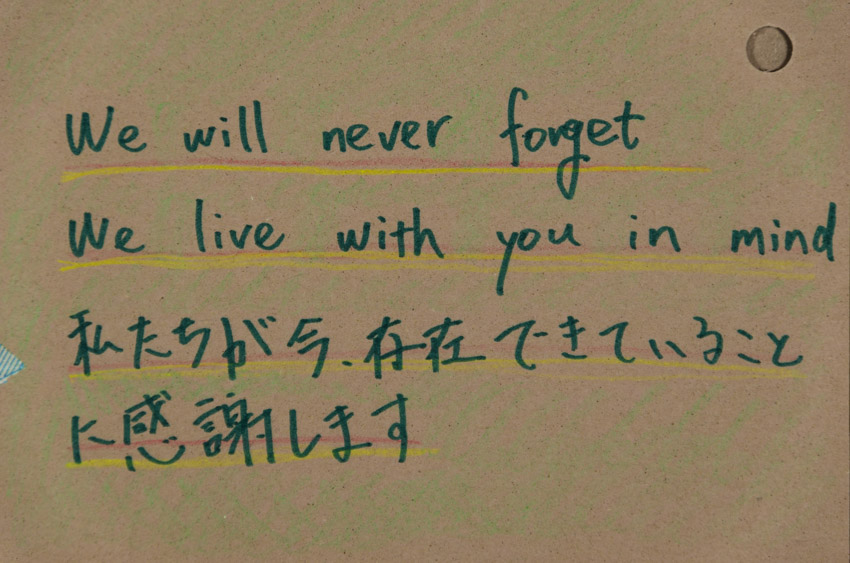 We will never forget
We live with you in mind
私たちが今、存在できていること
に感謝します